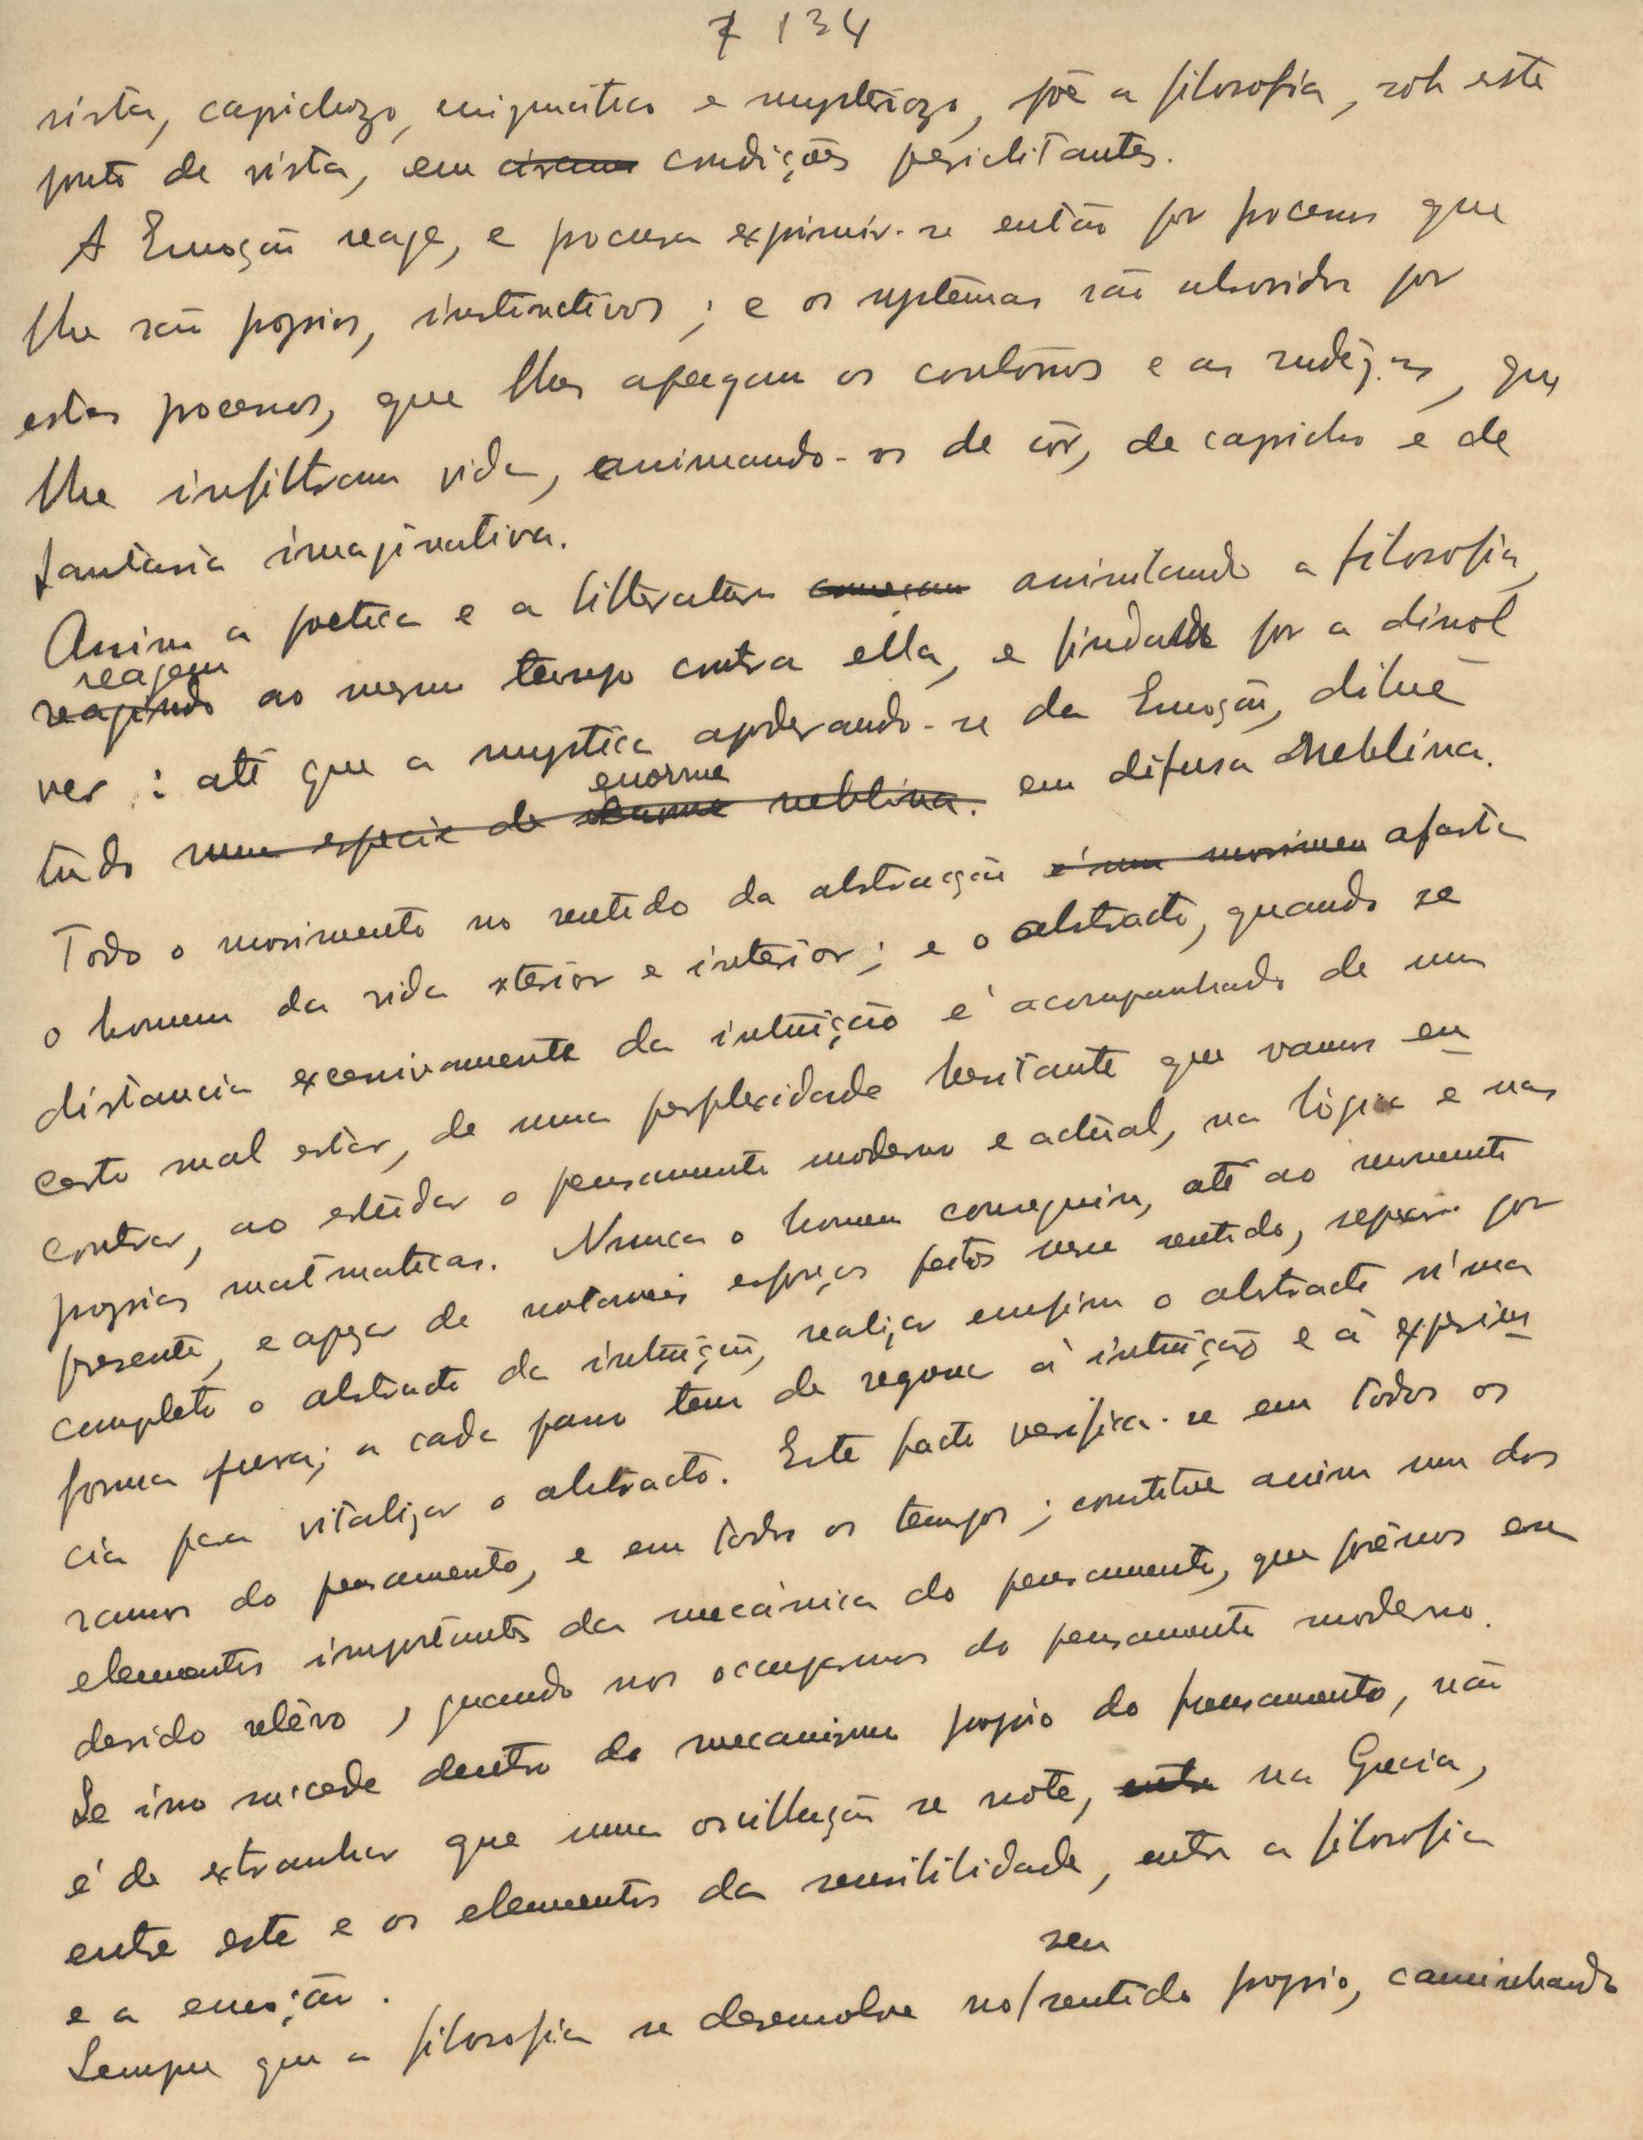 7 134
sista, caprichozo, enigmatico e mysteriozo, põe a filosofia, sob este
ponto de vista, em condições periclitantes.
A Emoção reage, e procura exprimir-se então por processos que
lhe são proprios, instinctivos; e os systemas são absorvidos por
estes processos, que lhes apagam os contornos e as rudezas, que
lhe infiltram vida, animando-os de côr, de capricho e de
fantasia imaginativa.
Assim a poetica e a litteratura começam assimilando a filosofia,
reagem
reagindo ao mesmo tempo contra ella, e findando por a disol
ver: até que a mystica apoderando-se da Emoção, diluê
enorme
tudo numa especie de neblina. em difusa neblina.
Todo o movimento no sentido da abstracção é um movimen afasta
o homem da vida xterior e interior; e o abstracto, quando se
distancia excessivamente da intuição é acompanhado de um
certo mal estar, de uma perplexidade hesitante que vamos en
contrar, ao estudar o pensamento moderno e actual, na lógica e nas
proprias matematicas. Nunca o homem conseguiu, até ao momento
presente, e apezar de notaveis esforços feitos nesse sentido, separar por
completo o abstracto da intuição, realizar emfim o abstracto n'uma
forma pura; a cada passo tem de regover á intuição e á experien
cia para vitalizar o abstracto. Este facto verifica-se em todos os
ramos do pensamento, e em todos os tempos; constitue assim um dos
elementos importantes da mecânica do pensamento, que porêmos em
devido relêvo, quando nos occuparmos do pensamento moderno.
Se isso sucede dentro do mecanismo proprio do pensamento, não
é de extranhar que uma oscillação se note, entre na Grecia,
entre este e os elementos da sensibilidade, entre a filosofia
e a emoção.
seu
Sempre que a filosofia se desenvolve no/sentido proprio, caminhando